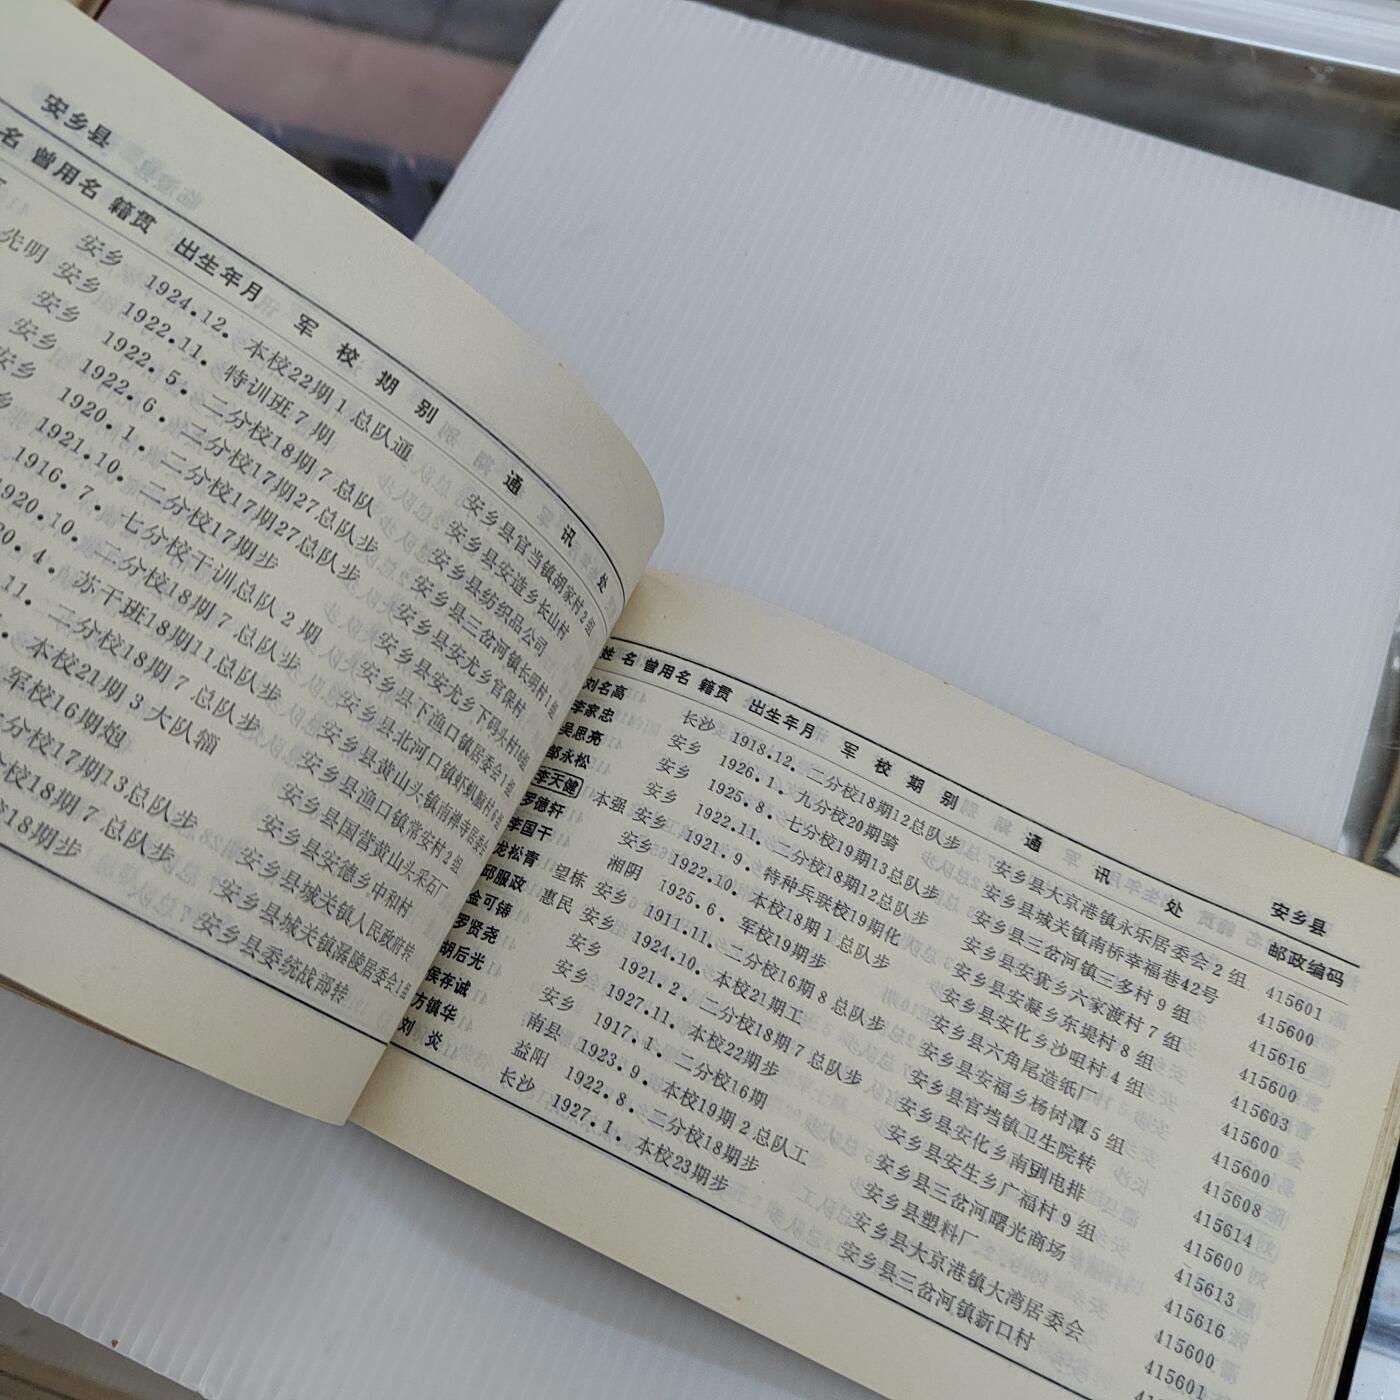 安乡县
名 曾用名 籍贯 出生年月 军校期别 通讯处
安乡 1924.12. 本校22期1总队通 安乡县官当镇胡家村2组
先明 安乡 1922.11. 特训班7期 安乡县安造乡长山村
安乡 1922.5. 二分校18期7总队 安乡县纺织品公司
安乡 1922.6. 二分校17期27总队步 安乡县三岔河镇长明村1组
安乡 1920.1. 二分校17期27总队步 安乡县安尤乡官保村
乡 1921.10. 二分校17期步 安乡县安尤乡下码头村6组
1916.7. 七分校干训总队2期 安乡县下渔口镇居委会1组
1920.10. 二分校18期7总队步 安乡县北河口镇虾趴脑村6组
20.4. 苏干班18期11总队步 安乡县黄山头镇南禅寺居委会
11. 二分校18期7总队步 安乡县渔口镇常安村2组
本校21期3大队辎 安乡县国营黄山头采石厂
军校16期炮 安乡县安德乡中和村
分校17期13总队步 安乡县城关镇人民政府转
分校18期7总队步 安乡县城关镇潺陵居委会1组
18期步 安乡县委统战部转
安乡县
姓名 曾用名 籍贯 出生年月 军校期别 通讯处 邮政编码
刘名高 长沙 1918.12. 二分校18期12总队步 安乡县大京港镇永乐居委会2组 415601
李家忠 安乡 1926.1. 九分校20期骑 安乡县城关镇南桥幸福巷42号 415600
吴思亮 安乡 1925.8. 七分校19期13总队步 安乡县三岔河镇三多村9组 415616
邹永松 安乡 1922.11. 二分校18期12总队步 安乡县安犹乡六家渡村7组 415600
李天健 本强 安乡 1921.9. 特种兵联校19期化 安乡县安凝乡东堤村8组 415603
罗德轩 安乡 1922.10. 本校18期1总队步 安乡县安化乡沙咀村4组 415600
李国干 湘阴 1925.6. 军校19期步 安乡县六角尾造纸厂 415600
龙松青 望栋 安乡 1911.11. 二分校16期8总队步 安乡县安福乡杨树潭5组 415608
邱服政 惠民 安乡 1924.10. 本校21期工 安乡县官垱镇卫生院转 415614
金可铸 安乡 1921.2. 二分校18期7总队步 安乡县安化乡南剅电排 415600
罗贤尧 安乡 1927.11. 本校22期步 安乡县安生乡广福村9组 415613
胡后光 安乡 1917.1. 二分校16期 安乡县三岔河曙光商场 415616
侯存诚 南县 1923.9. 本校19期2总队工 安乡县塑料厂 415600
方镇华 益阳 1922.8. 二分校18期步 安乡县大京港镇大湾居委会 415601
刘炎 长沙 1927.1. 本校23期步 安乡县三岔河镇新口村